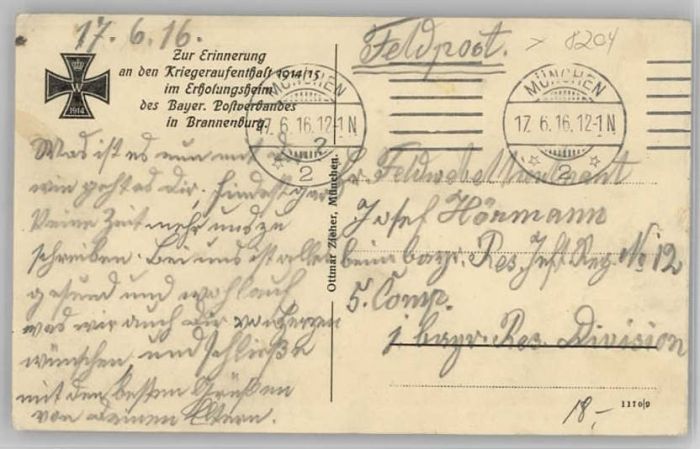 17. 6. 16.
Zur Erinnerung
an den Kriegeraufenthalt 1914(15)
im Erholungsheim
des Bayer. Postverbandes
in Brannenburg.
W
1914
Was ist es nun mit
wie geht es dir, findest gar
keine Zeit mehr uns zu
schreiben. Bei uns ist alles
gesund und wohlauf
was wir auch dir von Herzen
wünschen, und schließe
mit den besten Grüßen
von deinen Eltern.
Ottmar Zieher, München.
Feldpost.
8204
MÜNCHEN
17. 6. 16. 12-1 N
2
MÜNCHEN
17. 6. 16. 12-1 N
2
Hr. Feldwebelleutnant
Josef Hörmann
beim bayr. Res. Inft. Reg. No 12
5. Comp.
bayr. Res. Division
18,-
1170/9